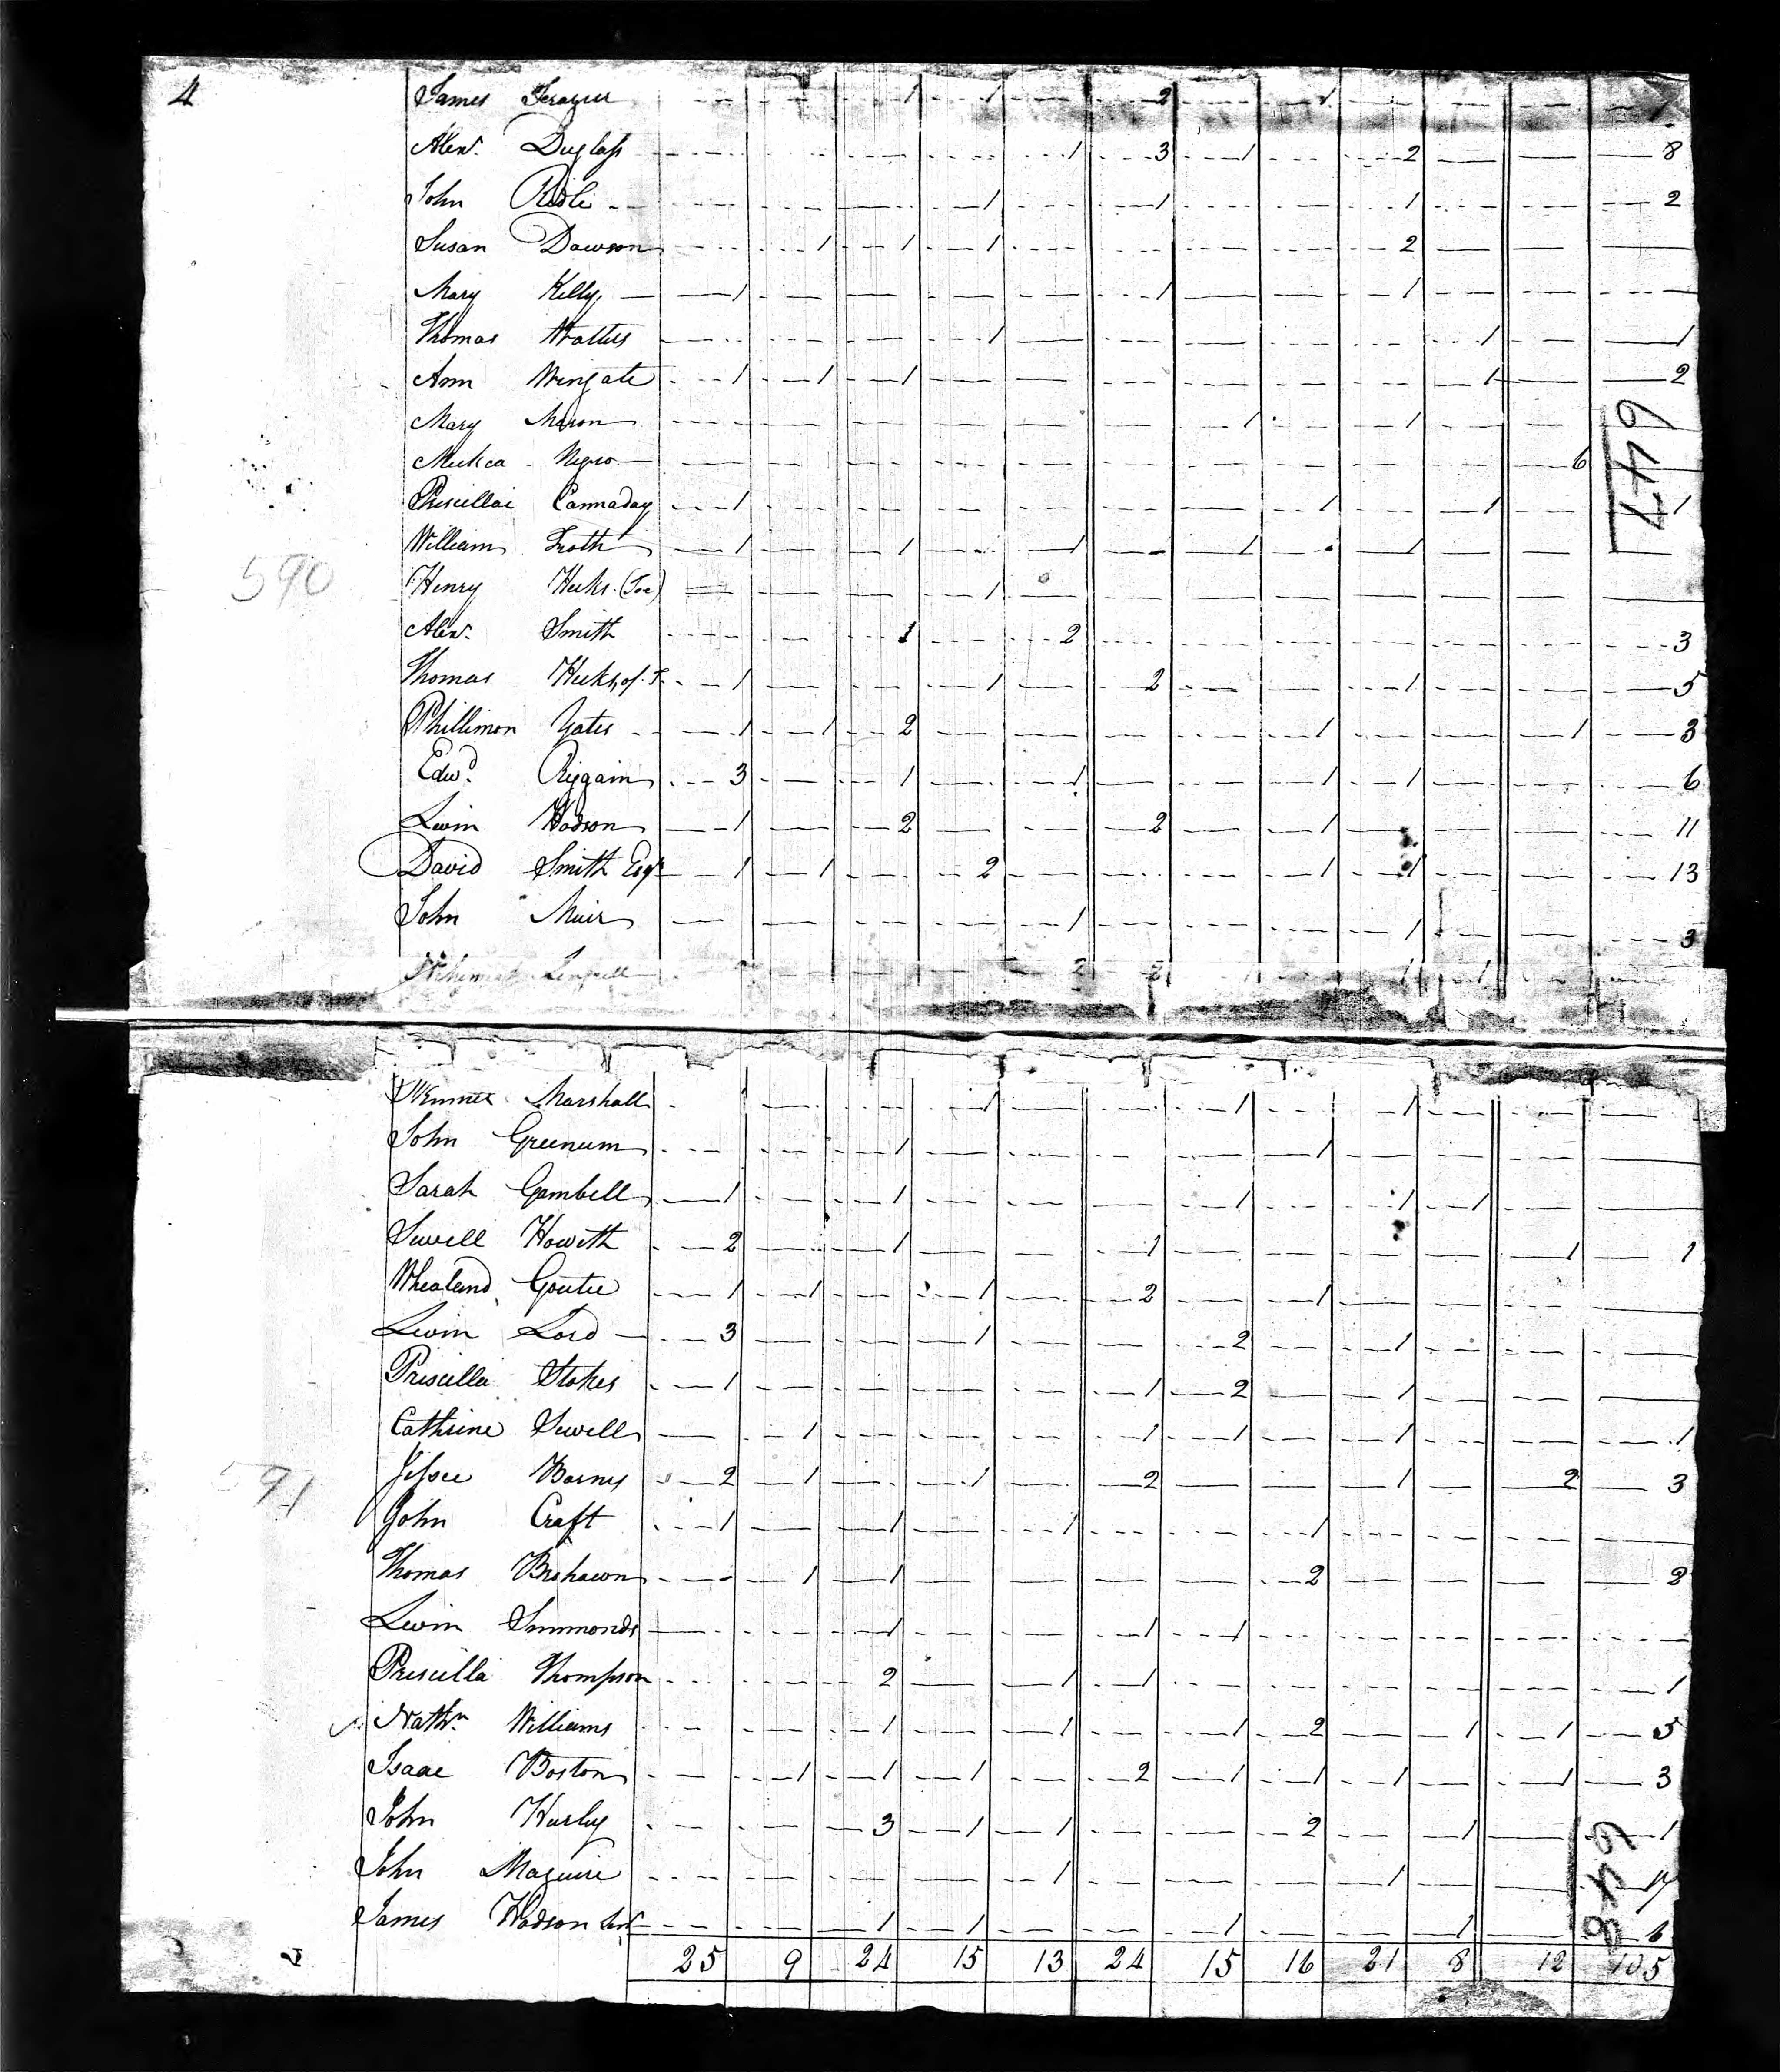 4 James Frazier - - 1 1 - 2 - 1 - - - 7
Alexr. Duglass - - - - 1 3 1 - 2 - - 8
John - - - 1 - 1 - - 1 - - 2
Susan Dawson - 1 1 1 - - - - 2 - - -
Mary Kelly 1 - - - - 1 - - 1 - - -
Thomas Watters - - - 1 - - - - - 1 - 1
Ann Wingate 1 1 1 - - - - - - 1 - 2
Mary - - - - - - 1 - 1 - - -
Negro - - - - - - - - - - 6 -
647
Priscillai Cannaday 1 - - - - - - 1 - 1 - 1
William Froth 1 - 1 - 1 - 1 - 1 - - -
590
Henry Hicks (Joe) - - - 1 - - - - - - - -
Alexr. Smith - - 1 - 2 - - - - - - 3
Thomas Hicks, of T. 1 - - 1 - 2 - - 1 - - 5
Phillimon Yates 1 1 2 - - - - 1 - - 1 3
Edwd. Riggain 3 - 1 - 1 - - 1 1 - - 6
Levin Hodson 1 - 2 - - 2 - 1 - - - 11
David Smith Esqr 1 1 - 2 - - - 1 1 - - 13
John Muir - - - - 1 - - - 1 - - 3
Marshall - - - 1 - - 1 - 1 - - -
John Greenum - - 1 - - - - 1 - - - -
Sarah Gambell 1 - 1 - - - 1 - 1 1 - -
Sewell Howith 2 - 1 - - 1 - - - - 1 1
Whealand Goutee 1 1 - 1 - 2 - 1 - - - -
Levin Lord 3 - - 1 - - 2 - 1 - - -
Priscilla Stokes 1 - - - - 1 2 - 1 - - -
Cathrine Sewell - 1 - - - 1 1 - 1 - - 1
591
Jessee Barnes 2 1 - 1 - 2 - - 1 - 2 3
John Craft 1 - 1 - 1 - - 1 - - - -
Thomas Brohawn - 1 1 - - - - 2 - - - 2
Levin Simmonds - - 1 - - 1 1 - - - - -
Priscilla Thompson - - 2 - 1 1 - - - - - 1
Nathn. Williams - - 1 - 1 - 1 2 - 1 1 5
Isaac Boston - 1 1 1 - 2 1 1 1 - 1 3
John Hurley - - 3 1 1 - - 2 - 1 - 1
John Maguire - - - - 1 - - - 1 - - 17
648
James Hodson Senr - - 1 1 - - 1 - - 1 - 6
25 9 24 15 13 24 15 16 21 8 12 105